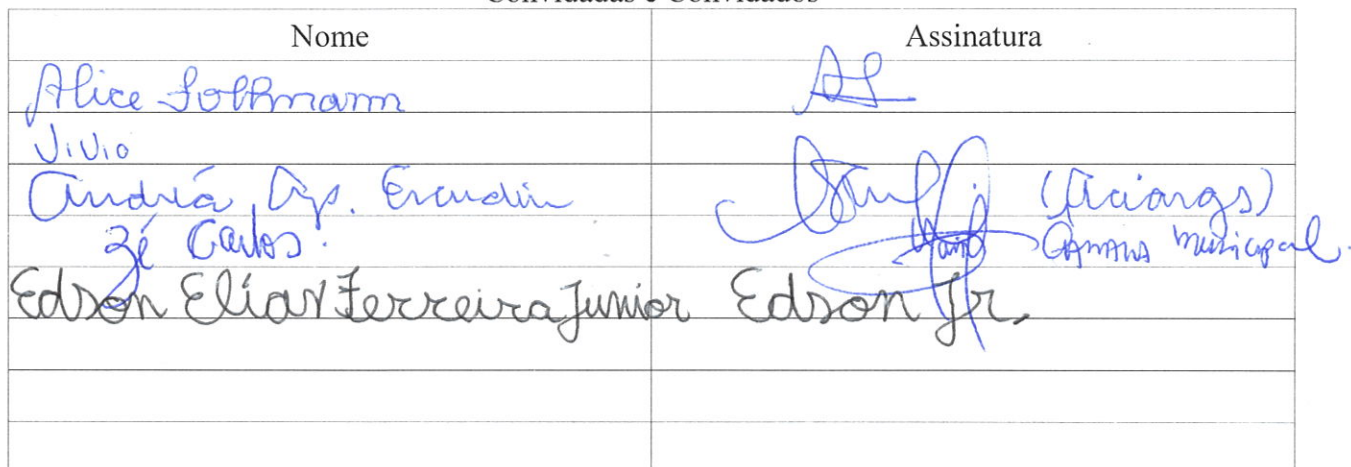 Convidadas e Convidados
Nome Assinatura
Alice AL
Vivio
Andréa Ap. (Aciargs)
Zé Carlos. Câmara Municipal.
Edson Elias Ferreira Junior Edson Jr.